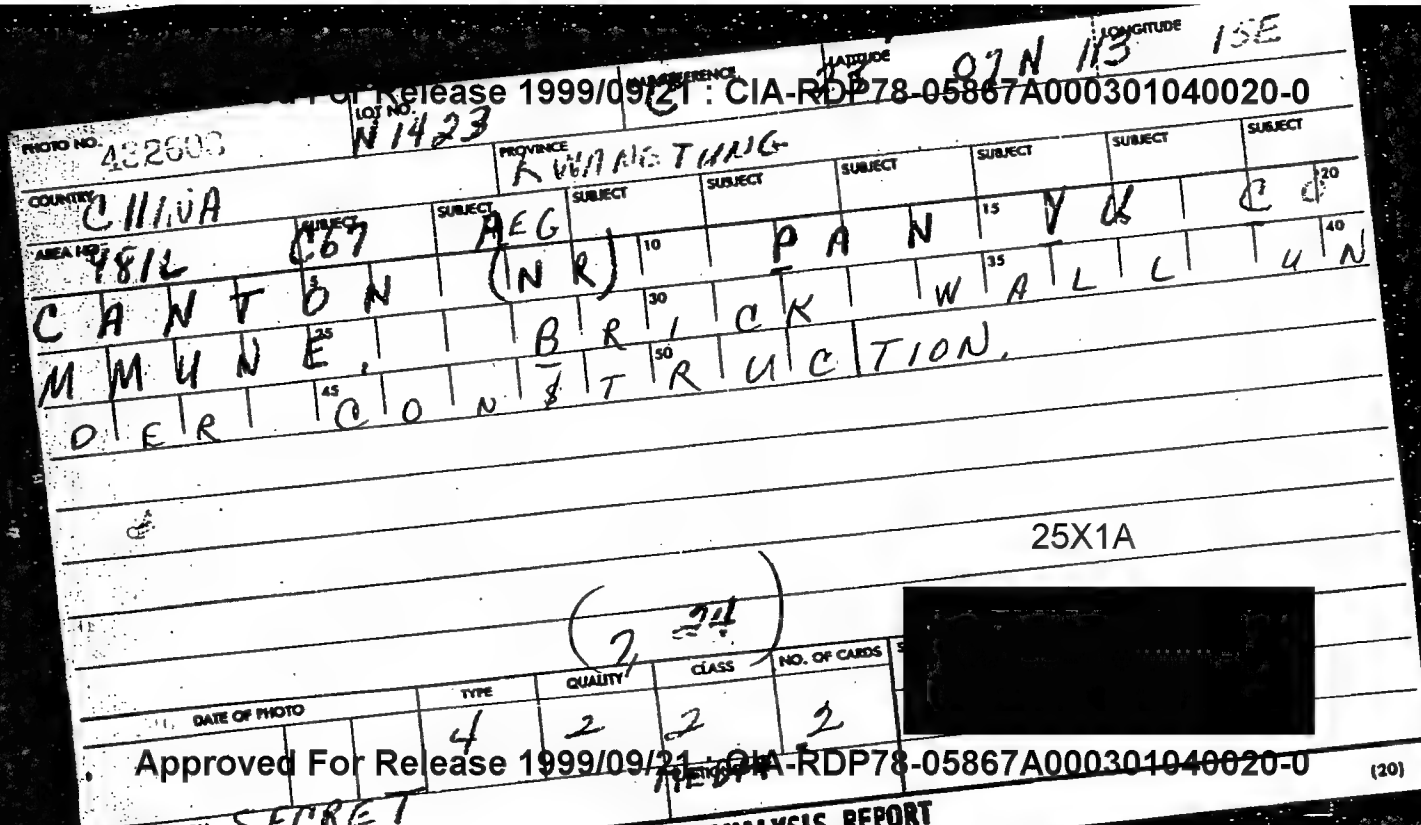 LATITUDE LONGITUDE
07 N 113 15E
For Release 1999/09/21 : CIA-RDP78-05867A000301040020-0
PHOTO NO. 432603 LOT NO. N 1423 C
COUNTRY CHINA PROVINCE KWANGTUNG
AREA NO. 981L SUBJECT C67 SUBJECT AEG SUBJECT SUBJECT SUBJECT SUBJECT SUBJECT SUBJECT
CANTON (NR) 10 PAN 15 YU CO 20
MMUNE. 25 BRICK 30 WALL 35 UN 40
DER 45 CONSTRUCTION. 50
25X1A
(2, 24)
DATE OF PHOTO TYPE QUALITY CLASS NO. OF CARDS
4 2 2 2
Approved For Release 1999/09/21 : CIA-RDP78-05867A000301040020-0
(20)
SECRET
ANALYSIS REPORT